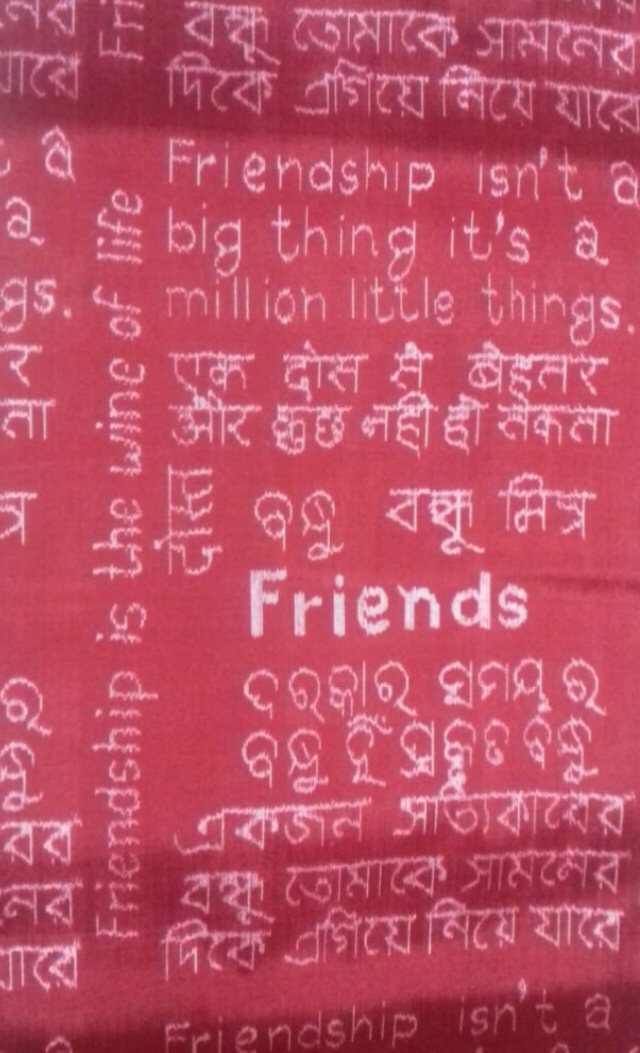 বন্ধু তোমাকে সামনের
দিকে এগিয়ে নিয়ে যাবে
Friendship isn't a
big thing it's a
million little things.
एक दोस्त से बेहतर
और कुछ नहीं हो सकता
Friendship is the wine of life
दोस्त
ବନ୍ଧୁ বন্ধু मित्र
Friends
ଦରକାର ସମୟର
ବନ୍ଧୁ ହିଁ ପ୍ରକୃତ ବନ୍ଧୁ
একজন সত্যিকারের
বন্ধু তোমাকে সামনের
দিকে এগিয়ে নিয়ে যাবে
Friendship isn't a